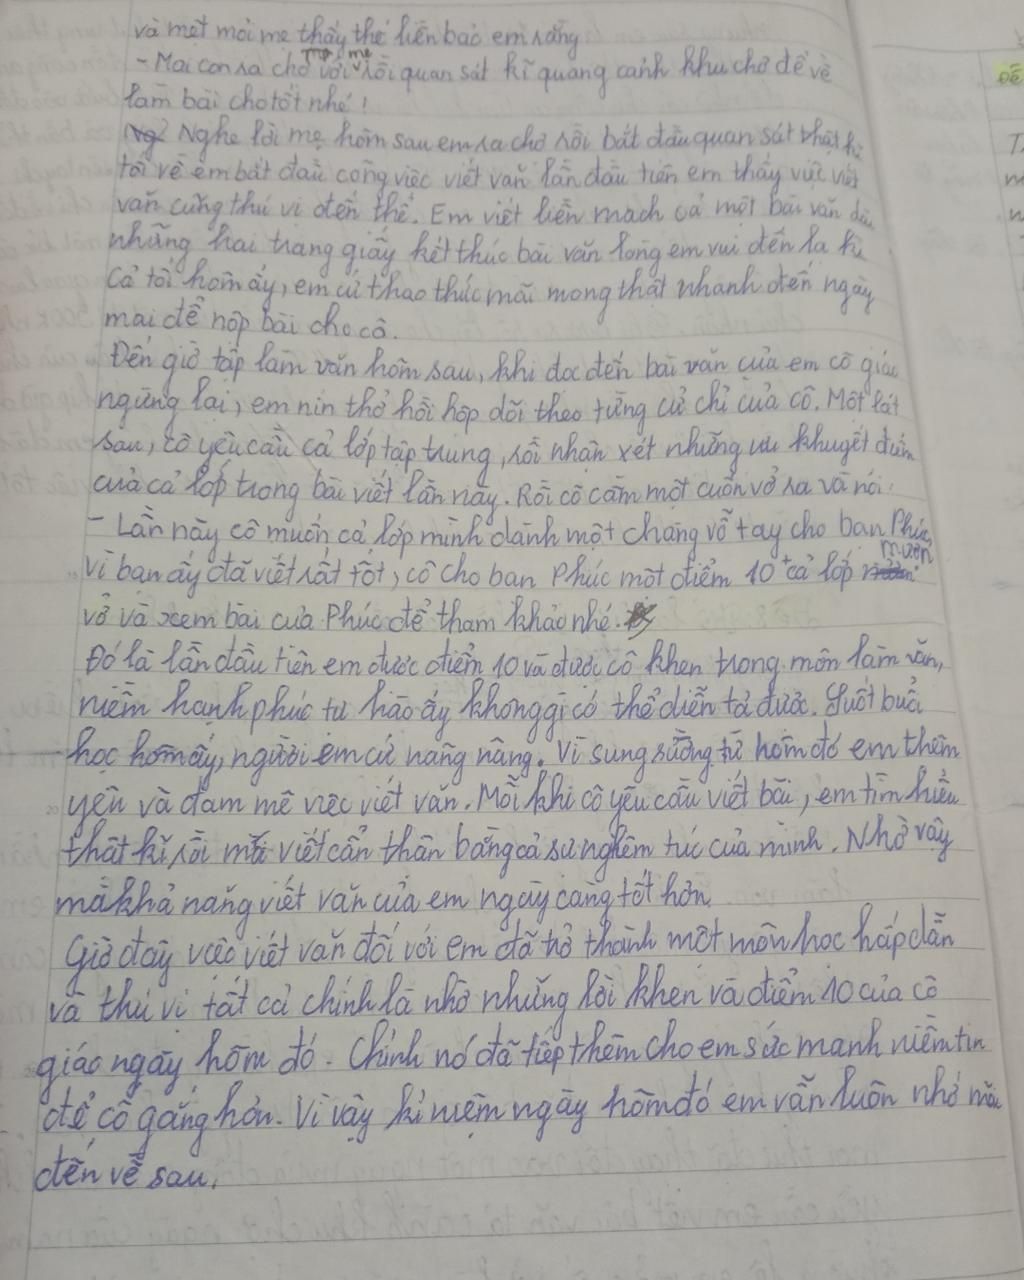 và mệt mỏi mẹ thấy thế liền bảo em rằng
- Mai con ra chợ với mẹ rồi quan sát kĩ quang cảnh khu chợ để về
làm bài cho tốt nhé!
Nghe lời mẹ hôm sau em ra chợ rồi bắt đầu quan sát thật kĩ
tối về em bắt đầu công việc viết văn lần đầu tiên em thấy việc viết
văn cũng thú vị đến thế. Em viết liền mạch cả một bài văn dài
những hai trang giấy kết thúc bài văn lòng em vui đến lạ kì
Cả tối hôm ấy, em cứ thao thức mãi mong thật nhanh đến ngày
mai để nộp bài cho cô.
Đến giờ tập làm văn hôm sau, khi đọc đến bài văn của em cô giáo
ngừng lại, em nín thở hồi hộp dõi theo từng cử chỉ của cô. Một lát
sau, cô yêu cầu cả lớp tập trung, rồi nhận xét những ưu khuyết điểm
của cả lớp trong bài viết lần này. Rồi cô cầm một cuốn vở ra và nói:
- Lần này cô muốn cả lớp mình dành một chàng vỗ tay cho bạn Phúc,
vì bạn ấy đã viết rất tốt, cô cho bạn Phúc một điểm 10+ cả lớp mượn
vở và xem bài của Phúc để tham khảo nhé.
Đó là lần đầu tiên em được điểm 10 và được cô khen trong môn làm văn,
niềm hạnh phúc tự hào ấy không gì có thể diễn tả được. Suốt buổi
học hôm ấy, người em cứ nâng nâng. Vì sung sướng từ hôm đó em thêm
yêu và đam mê việc viết văn. Mỗi khi cô yêu cầu viết bài, em tìm hiểu
thật kĩ rồi mới viết cẩn thận bằng cả sự nghiêm túc của mình. Nhờ vậy
mà khả năng viết văn của em ngày càng tốt hơn
Giờ đây việc viết văn đối với em đã trở thành một môn học hấp dẫn
và thú vị tất cả chính là nhờ những lời khen và điểm 10 của cô
giáo ngày hôm đó. Chính nó đã tiếp thêm cho em sức mạnh niềm tin
để cố gắng hơn. Vì vậy kỉ niệm ngày hôm đó em vẫn luôn nhớ mãi
đến về sau.